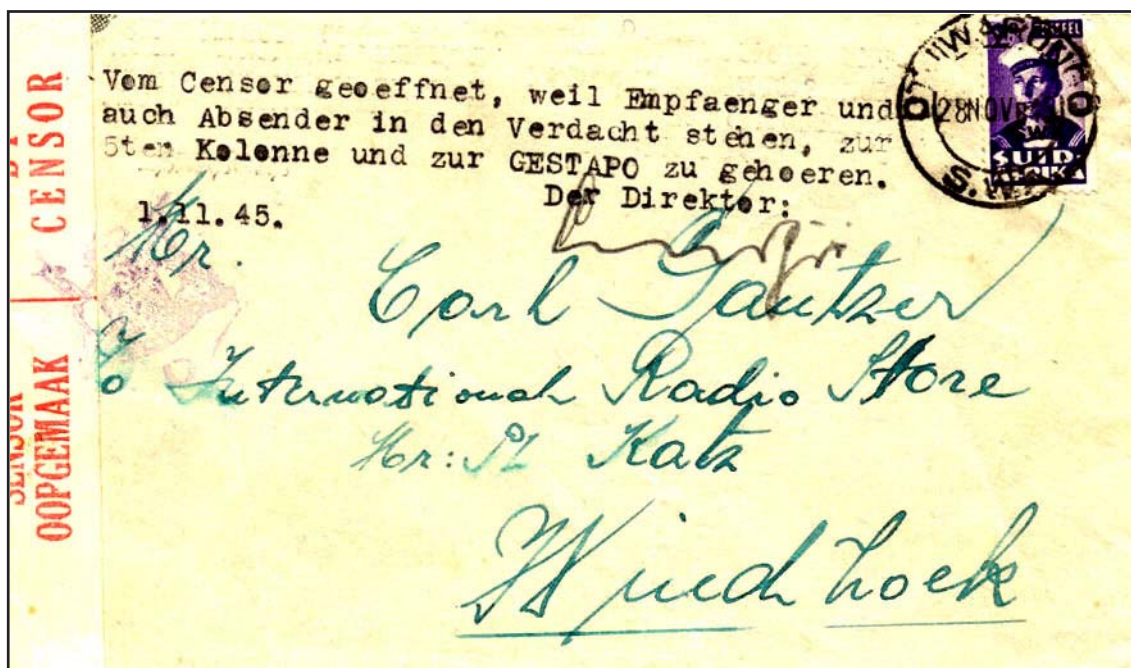 CENSOR
SENSOR
OOPGEMAAK
Vom Censor geoeffnet, weil Empfaenger und
auch Absender in den Verdacht stehen, zur
5ten Kolonne und zur GESTAPO zu gehoeren.
Der Direktor:
1.11.45.
OTJIWARONGO
28 NOV
SUID-
AFRIKA
Mr.
Carl Sautzer
c/o International Radio Store
Mr: Katz
Windhoek